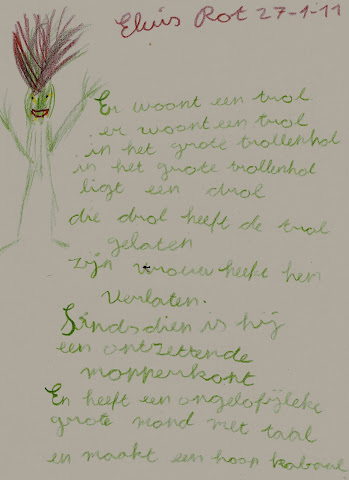 Elvis Rot 27-1-11
Er woont een trol
er woont een trol
in het grote trollenhol
in het grote trollenhol
ligt een drol
die drol heeft de trol
gelaten
zijn vrouw heeft hem
verlaten.
Sindsdien is hij
een ontzettende
mopperkont
En heeft een ongelofijleke
grote mond met taal
en maakt een hoop kabaal